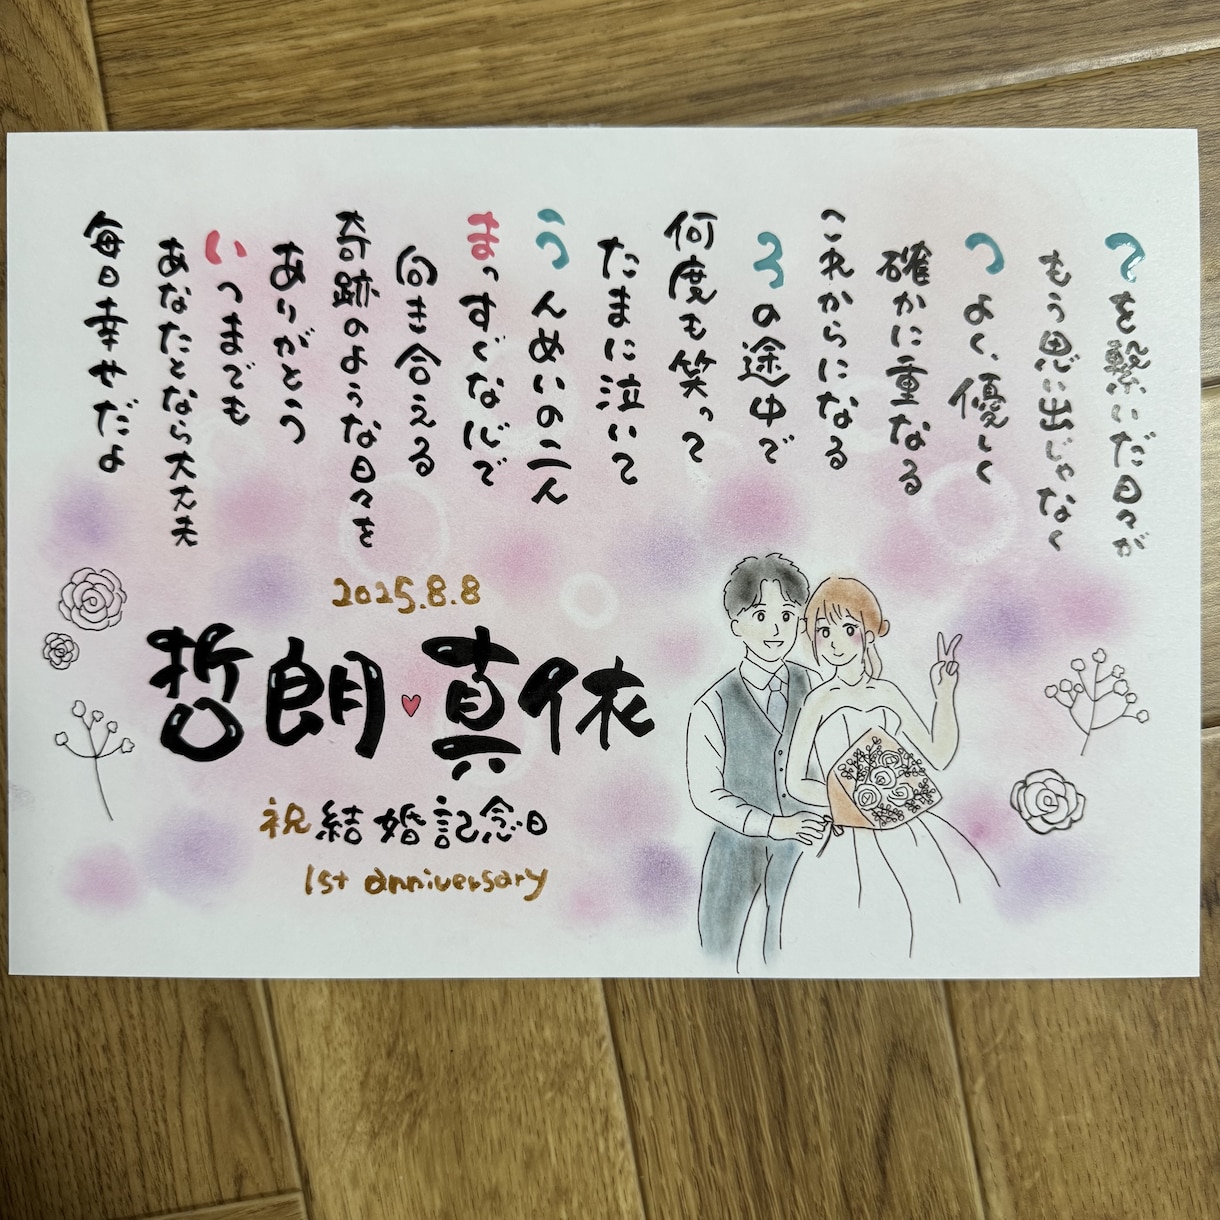 てを繋いだ日々が
もう思い出じゃなく
つよく、優しく
確かに重なる
これからになる
ろの途中で
何度も笑って
たまに泣いて
うんめいの二人
まっすぐな心で
向き合える
奇跡のような日々を
ありがとう
いつまでも
あなたとなら大丈夫
毎日幸せだよ
2025.8.8
哲朗♥真依
祝結婚記念日
1st anniversary